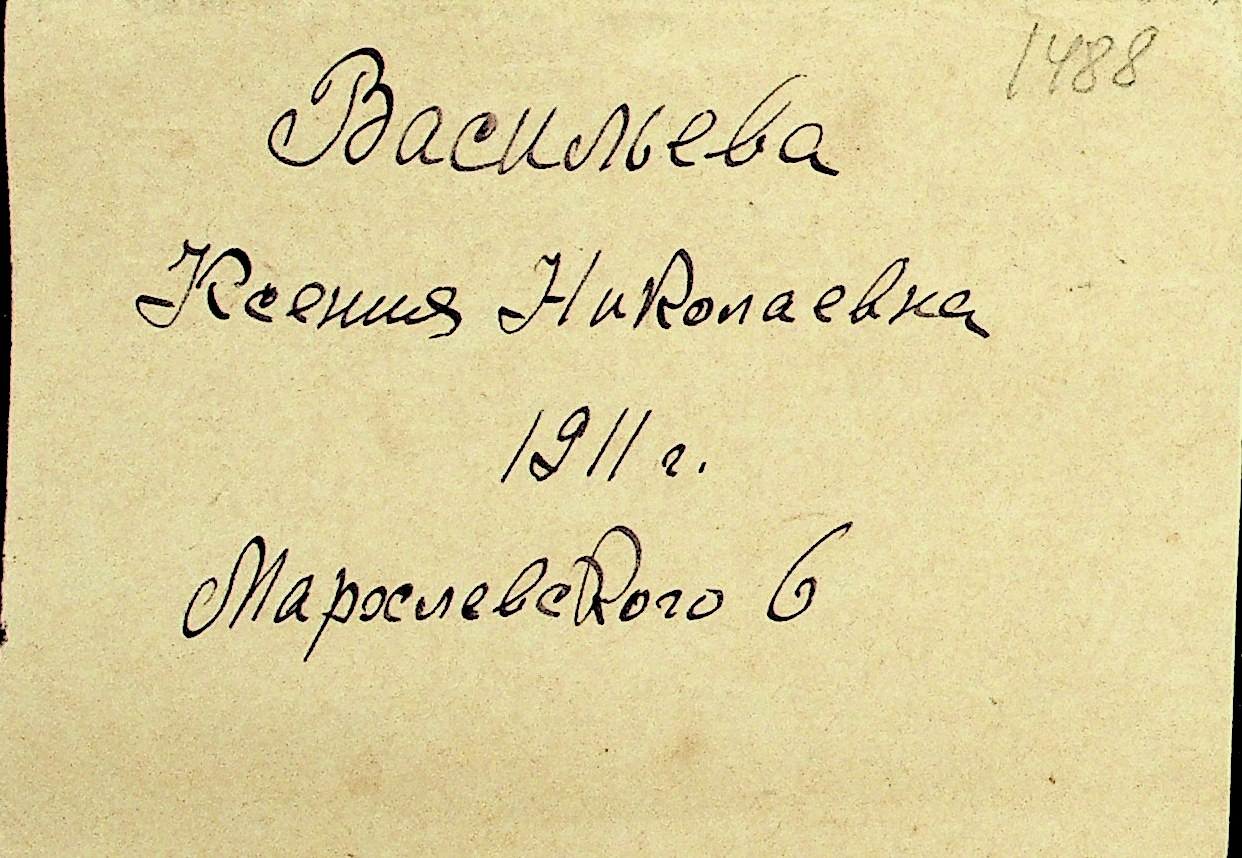 1488
Васильева
Ксения Николаевна
1911 г.
6